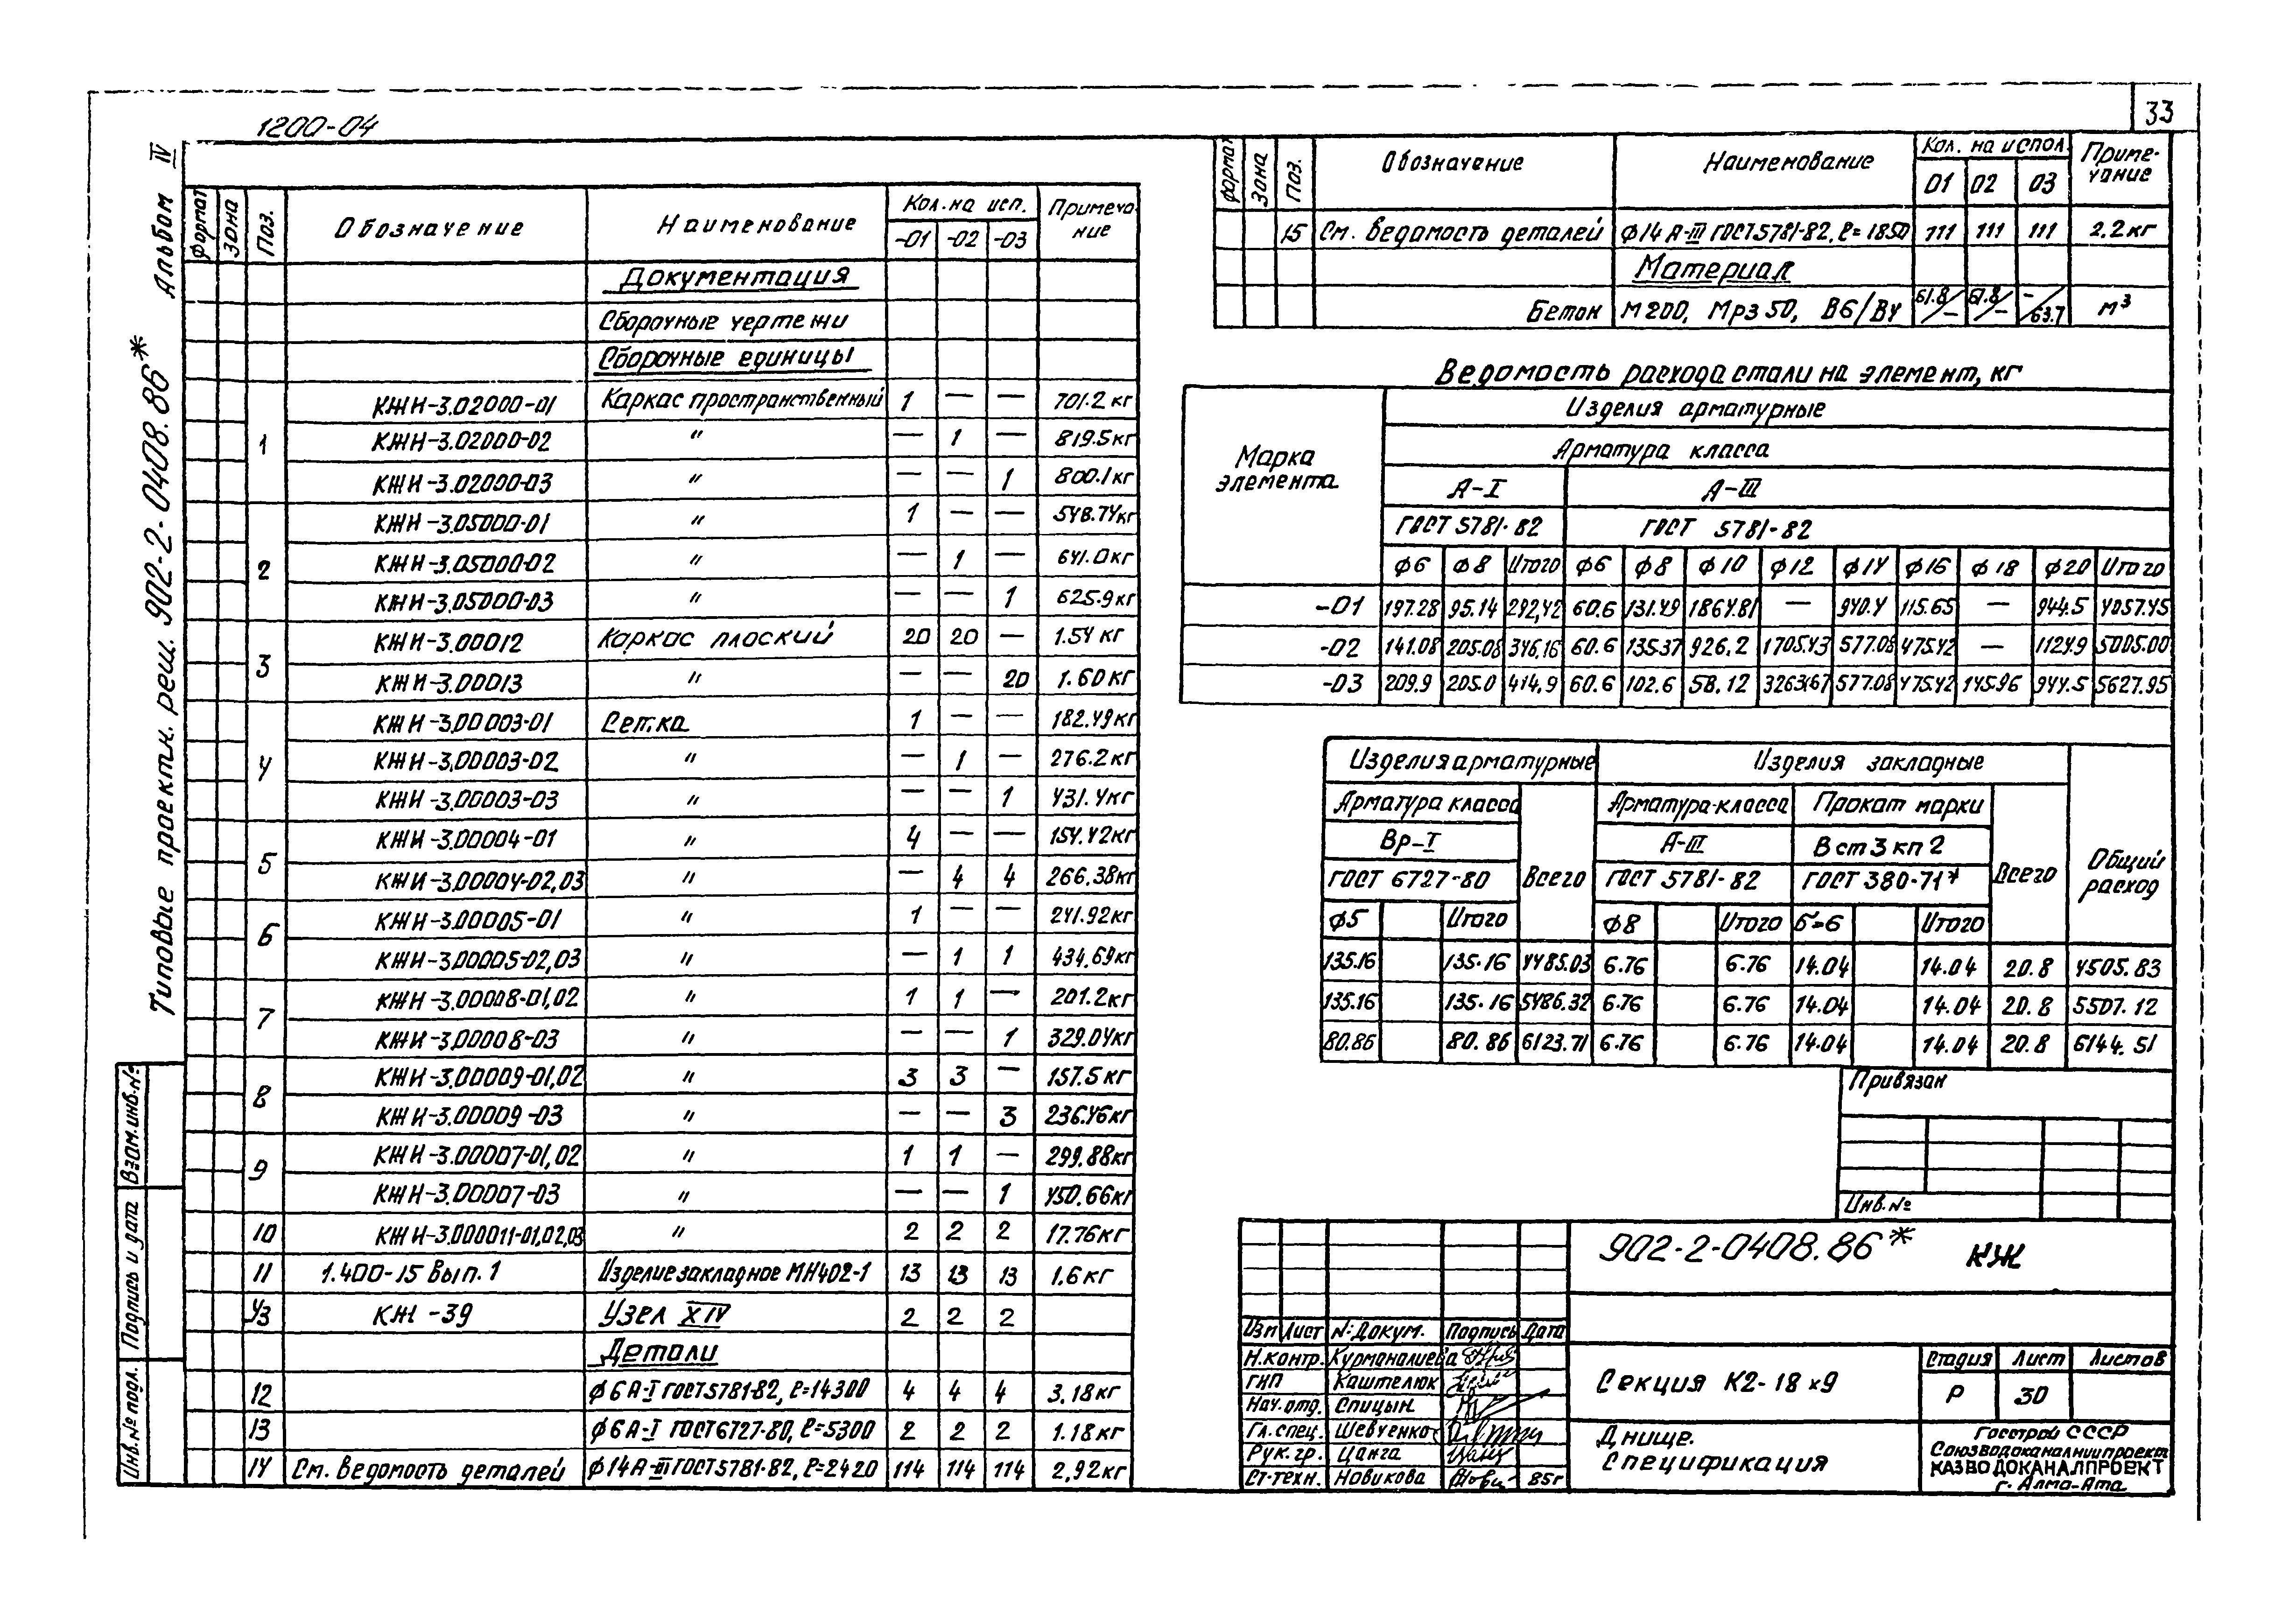 33
1200-04
Альбом IV
Типовые проектн. реш. 902-2-0408.86*
Формат Зона Поз. Обозначение Наименование Кол. на исп. Примечание
-01 -02 -03
Документация
Сборочные чертежи
Сборочные единицы
1 КЖИ-3.02000-01 Каркас пространственный 1 — — 701.2 кг
КЖИ-3.02000-02 " — 1 — 819.5 кг
КЖИ-3.02000-03 " — — 1 800.1 кг
2 КЖИ-3.05000-01 " 1 — — 548.74 кг
КЖИ-3.05000-02 " — 1 — 641.0 кг
КЖИ-3.05000-03 " — — 1 625.9 кг
3 КЖИ-3.00012 Каркас плоский 20 20 — 1.54 кг
КЖИ-3.00013 " — — 20 1.60 кг
4 КЖИ-3.00003-01 Сетка 1 — — 182.49 кг
КЖИ-3.00003-02 " — 1 — 276.2 кг
КЖИ-3.00003-03 " — — 1 431.4 кг
5 КЖИ-3.00004-01 " 4 — — 154.42 кг
КЖИ-3.00004-02,03 " — 4 4 266.38 кг
6 КЖИ-3.00005-01 " 1 — — 241.92 кг
КЖИ-3.00005-02,03 " — 1 1 434.69 кг
7 КЖИ-3.00008-01,02 " 1 1 — 201.2 кг
КЖИ-3.00008-03 " — — 1 329.04 кг
8 КЖИ-3.00009-01,02 " 3 3 — 157.5 кг
КЖИ-3.00009-03 " — — 3 236.46 кг
9 КЖИ-3.00007-01,02 " 1 1 — 299.88 кг
КЖИ-3.00007-03 " — — 1 450.66 кг
10 КЖИ-3.000011-01,02,03 " 2 2 2 17.76 кг
11 1.400-15 Вып. 1 Изделие закладное МН402-1 13 13 13 1.6 кг
У3 КЖI-39 Узел XIV 2 2 2
Детали
12 ф6 А-I ГОСТ 5781-82, ℓ=14300 4 4 4 3.18 кг
13 ф6 А-I ГОСТ 6727-80, ℓ=5300 2 2 2 1.18 кг
14 См. Ведомость деталей ф14 А-III ГОСТ 5781-82, ℓ=2420 114 114 114 2,92 кг
Взам.инв.№
Подпись и дата
Инв.№ подл.
Формат Зона Поз. Обозначение Наименование Кол. на испол. Примечание
01 02 03
15 См. Ведомость деталей ф14 А-III ГОСТ 5781-82, ℓ=1850 111 111 111 2.2 кг
Материал
Бетон М200, Мрз 50, В6/В4 61.8/— 61.8/— —/63.7 м³
Ведомость расхода стали на элемент, кг
Марка элемента Изделия арматурные
Арматура класса
А-I А-III
ГОСТ 5781-82 ГОСТ 5781-82
ф6 ф8 Итого ф6 ф8 ф10 ф12 ф14 ф16 ф18 ф20 Итого
-01 197.28 95.14 292,42 60.6 131.49 1864.81 — 940.4 115.65 — 944.5 4057.45
-02 141.08 205.08 346.16 60.6 135.37 926.2 1705.43 577.08 475.42 — 1124.9 5005.00
-03 209.9 205.0 414,9 60.6 102.6 58.12 3263.67 577.08 475.42 145.96 944.5 5627.95
Изделия арматурные Изделия закладные Общий расход
Арматура класса Всего Арматура класса Прокат марки Всего
Вр-I А-III В ст 3 кп 2
ГОСТ 6727-80 ГОСТ 5781-82 ГОСТ 380-71*
ф5 Итого ф8 Итого б=6 Итого
135.16 135.16 4485.03 6.76 6.76 14.04 14.04 20.8 4505.83
135.16 135.16 5486.32 6.76 6.76 14.04 14.04 20.8 5507.12
80.86 80.86 6123.71 6.76 6.76 14.04 14.04 20.8 6144.51
Привязан
Инв.№
902-2-0408.86* КЖ
Изм Лист №Докум. Подпись Дата
Н.контр. Курманалиева
ГИП Каштелюк
Нач.отд. Спицын
Гл.спец. Шевченко
Рук.гр. Цанга
Ст.техн. Новикова 85г
Секция К2-18х9
Стадия Лист Листов
Р 30
Днище.
Спецификация
Госстрой СССР
Союзводоканалниипроект
КАЗВОДОКАНАЛПРОЕКТ
г. Алма-Ата